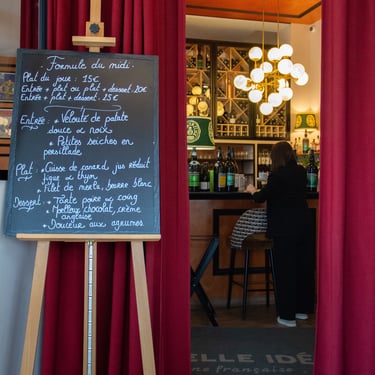 Formule du midi
Plat du jour : 15€
Entrée + plat ou plat + dessert 20€
Entrée + plat + dessert : 25€
Entrée : * Velouté de patate
douce & noix
* Petites seiches en
persillade
Plat : * Cuisse de canard, jus réduit
figue & thym
* Filet de merlu, beurre blanc
Dessert : * Tarte poire & coing
* Moelleux chocolat, crème
anglaise
* Douceur aux agrumes
ELLE IDÉ
ne française